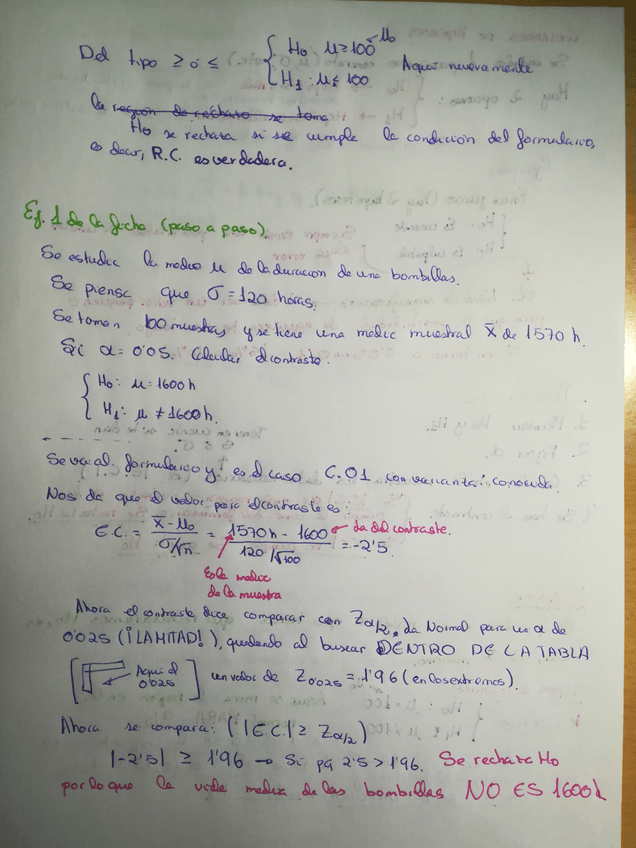 Del tipo ≥ o ≤ { H0: μ ≥ 100 → μ0
H1: μ ≤ 100 Aquí nuevamente
la región de rechazo se toma
H0 se rechaza si se cumple la condición del formulario,
es decir, R.C. es verdadera.
Ej. 1 de la ficha (paso a paso).
Se estudia la media μ de la duración de una bombillas.
Se piensa que σ = 120 horas.
Se toman 100 muestras y se tiene una media muestral x̄ de 1570 h.
Si α = 0'05. Calcular el contraste.
{ H0: μ = 1600 h
H1: μ ≠ 1600 h.
Se va al formulario y es el caso C.01 con varianza conocida.
Nos da que el valor para el contraste es:
E.C. = (x̄ - μ0) / (σ/√n) = (1570 h - 1600) / (120/√100) = -2'5
→ da el contraste.
Es la media
de la muestra
Ahora el contraste dice comparar con Zα/2, la Normal para un α de
0'025 (¡LA MITAD!), quedando al buscar DENTRO DE LA TABLA
[ Aquí el 0'025 ] un valor de Z0'025 = 1'96 (en los extremos).
Ahora se compara: (|E.C.| ≥ Zα/2)
|-2'5| ≥ 1'96 → Sí pq 2'5 > 1'96. Se rechaza H0
por lo que la vida media de las bombillas NO ES 1600 h